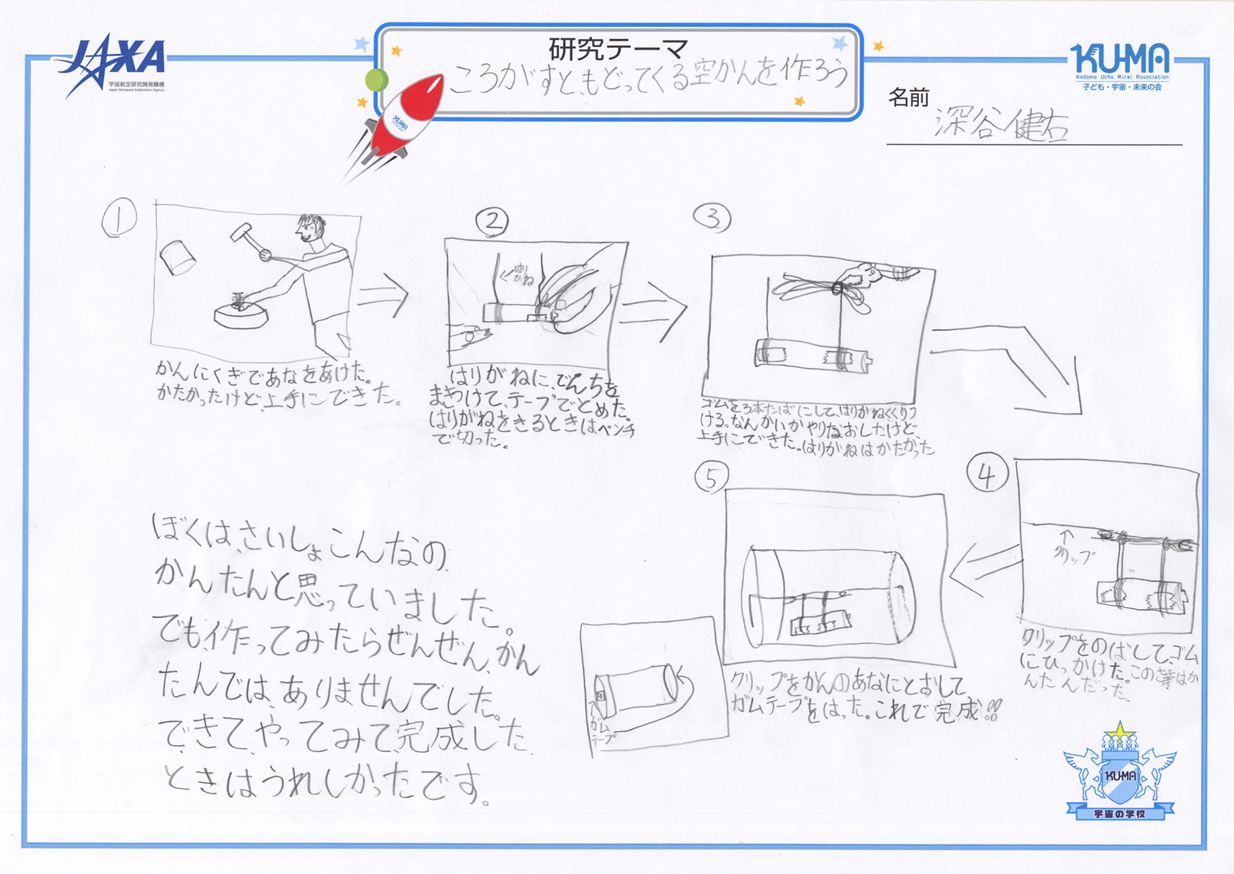 JAXA
宇宙航空研究開発機構
Japan Aerospace Exploration Agency
研究テーマ
ころがすともどってくる空かんを作ろう
KUMA
KU-MA
Kodomo Uchu Mirai Association
子ども・宇宙・未来の会
名前
深谷健右
①
かんにくぎであなをあけた。
かたかったけど、上手にできた。
②
はりがね
はりがねに、でんちを
まきつけて、テープでとめた。
はりがねをきるときはペンチ
で切った。
③
ゴムを3本たばにして、はりがねくくりつ
ける。なんかいかやりなおしたけど
上手にできた。はりがねはかたかった
④
クリップ
クリップをのばして、ゴム
にひっかけた。この作業はか
んたんだった。
⑤
クリップをかんのあなにとおして
ガムテープをはった。これで完成!!
ガムテープ
ぼくは、さいしょこんなの
かんたんと思っていました。
でも、作ってみたらぜんぜん、かん
たんでは、ありませんでした。
できて、やってみて完成した、
ときはうれしかったです。
KU-MA
宇宙の学校